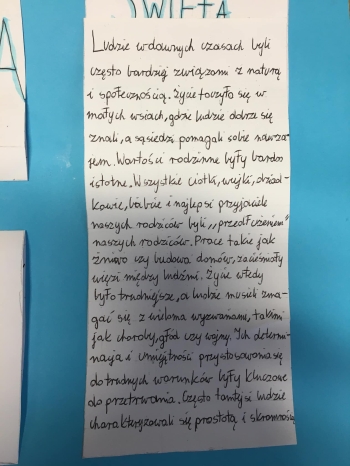 ŚWIĘTA
A
Ludzie w dawnych czasach byli
często bardziej związani z naturą
i społecznością. Życie toczyło się w
małych wsiach, gdzie ludzie dobrze się
znali, a sąsiedzi pomagali sobie nawza-
jem. Wartości rodzinne były bardzo
istotne. Wszystkie ciotki, wujki, dziad-
kowie, babcie i najlepsi przyjaciele
naszych rodziców byli ,,przedłużeniem"
naszych rodziców. Prace takie jak
żniwa czy budowa domów, zacieśniały
więzi między ludźmi. Życie wtedy
było trudniejsze, a ludzie musieli zma-
gać się z wieloma wyzwaniami, takimi
jak choroby, głód czy wojny. Ich determi-
nacja i umiejętności przystosowania się
do trudnych warunków były kluczowe
do przetrwania. Często tamtejsi ludzie
charakteryzowali się prostotą i skromnością